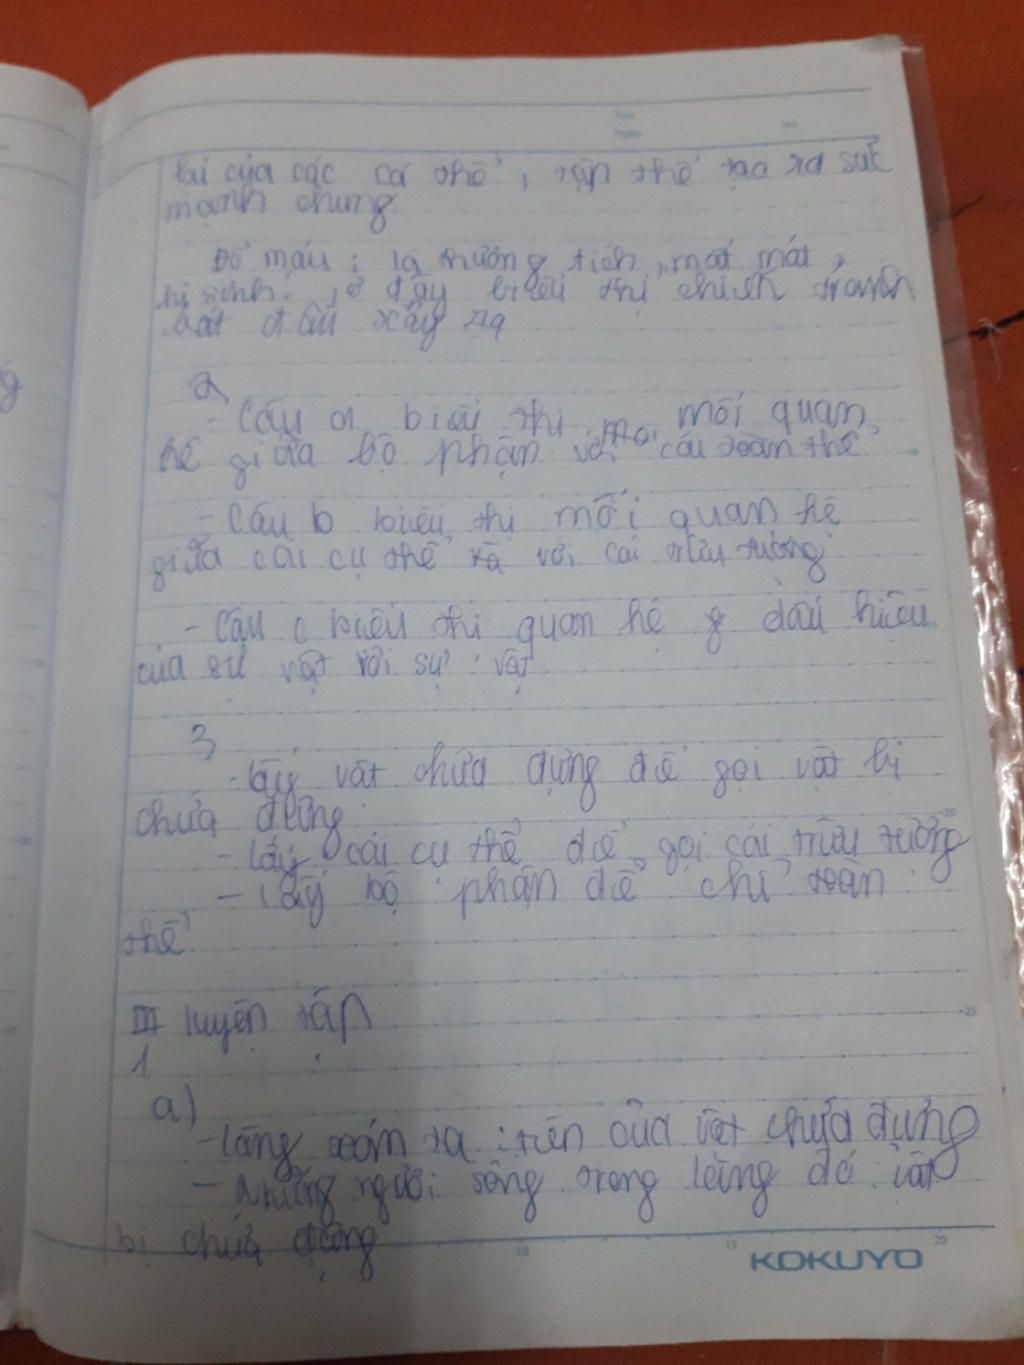 lại của các cá thể, tập thể tạo ra sức
mạnh chung
Đổ máu: là thương tích, mất mát,
hi sinh, ở đây biểu thị chiến tranh
bắt đầu xảy ra
2
- Câu a biểu thị mối quan
hệ giữa bộ phận với cái toàn thể
- Câu b biểu thị mối quan hệ
giữa cái cụ thể với cái trừu tượng
- Câu c biểu thị quan hệ dấu hiệu
của sự vật với sự vật
3
- lấy vật chứa đựng để gọi vật bị
chứa đựng
- lấy cái cụ thể để gọi cái trừu tượng
- lấy bộ phận để chỉ toàn
thể
III luyện tập
1
a)
- làng xóm ta: tên của vật chứa đựng
- những người sống trong làng đó: vật
bị chứa đựng
KOKUYO
10
15
20
25